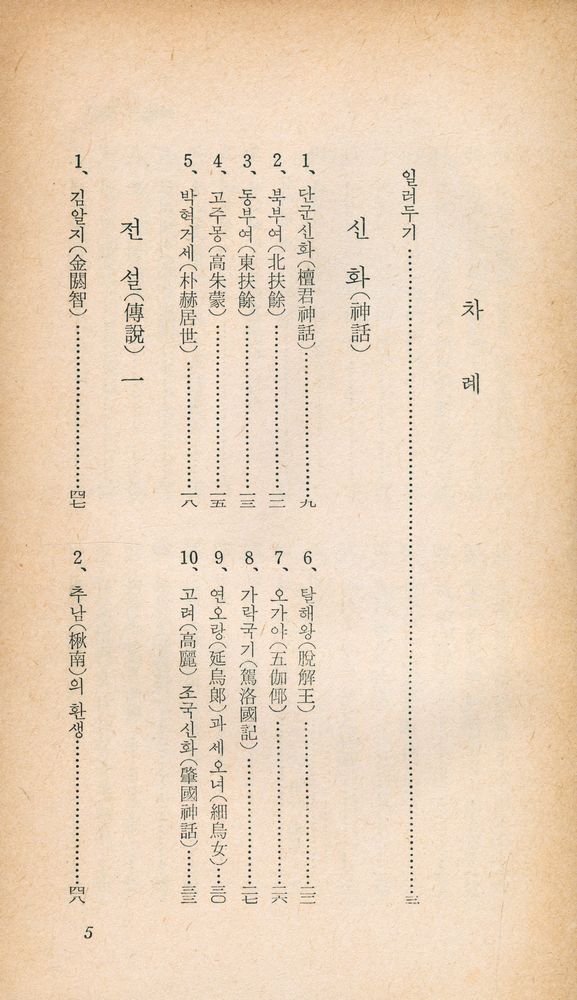 차례
일러두기……三
신화(神話)
1、단군신화(檀君神話)……九
2、북부여(北扶餘)……一二
3、동부여(東扶餘)……一三
4、고주몽(高朱蒙)……一五
5、박혁거세(朴赫居世)……一八
6、탈해왕(脫解王)……二二
7、오가야(五伽倻)……二六
8、가락국기(駕洛國記)……二七
9、연오랑(延烏郎)과 세오녀(細烏女)……三〇
10、고려(高麗) 조국신화(肇國神話)……三三
전설(傳說) 一
1、김알지(金閼智)……四七
2、추남(楸南)의 환생……四八
5